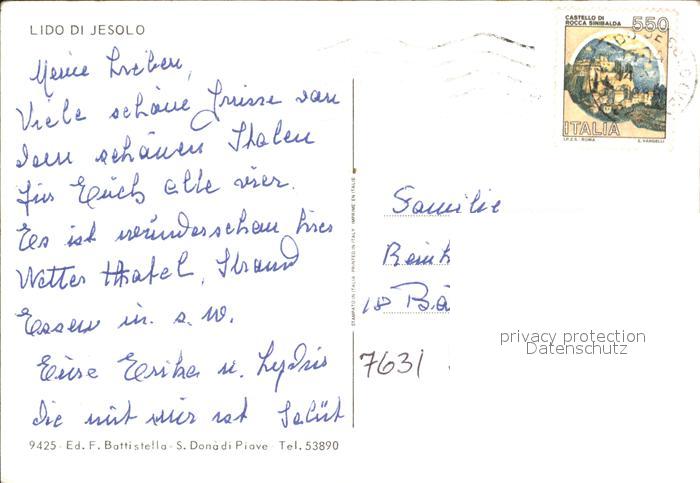 LIDO DI JESOLO
Meine Lieben,
Viele schöne Grüsse von
dem schönen Italen
für Euch alle vier.
Es ist wunderschön hier
Wetter Hotel, Strand
Essen u. s. w.
Eure Erika u. Lydia
die mit mir ist Salüt
9425 - Ed. F. Battistella - S. Donà di Piave - Tel. 53890
STAMPATO IN ITALY PRINTED IN ITALY IMPRIME EN ITALIE
CASTELLO DI
ROCCA SINIBALDA
550
ITALIA
I.P.Z.S. ROMA E. VANGELLI
Familie
7631
privacy protection
Datenschutz